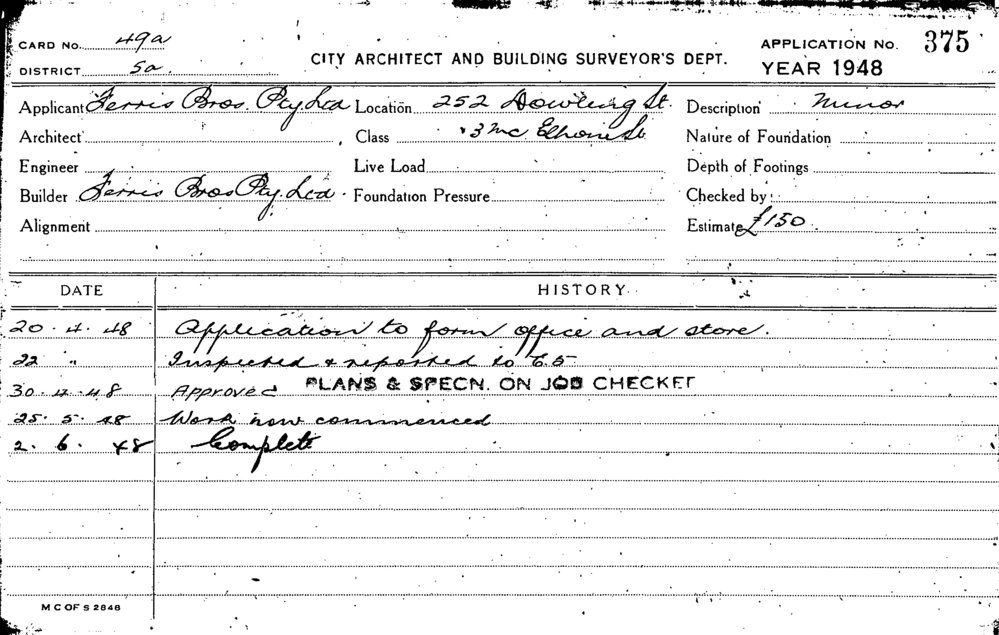 CARD No. 49a
CITY ARCHITECT AND BUILDING SURVEYOR'S DEPT.
APPLICATION No. 375
DISTRICT 5a
YEAR 1948
Applicant Ferris Bros. Pty Ltd Location 252 Dowling St. Description Minor
Architect Class 3 McElhone St Nature of Foundation
Engineer Live Load Depth of Footings
Builder Ferris Bros Pty. Ltd. Foundation Pressure Checked by
Alignment Estimate £150
DATE HISTORY
20.4.48 Application to form office and store.
22 " Inspected & reported to
30.4.48 Approved PLANS & SPECN. ON JOB CHECKET
25.5.48 Work now commenced
2.6.48 Complete
M C OF S 2848